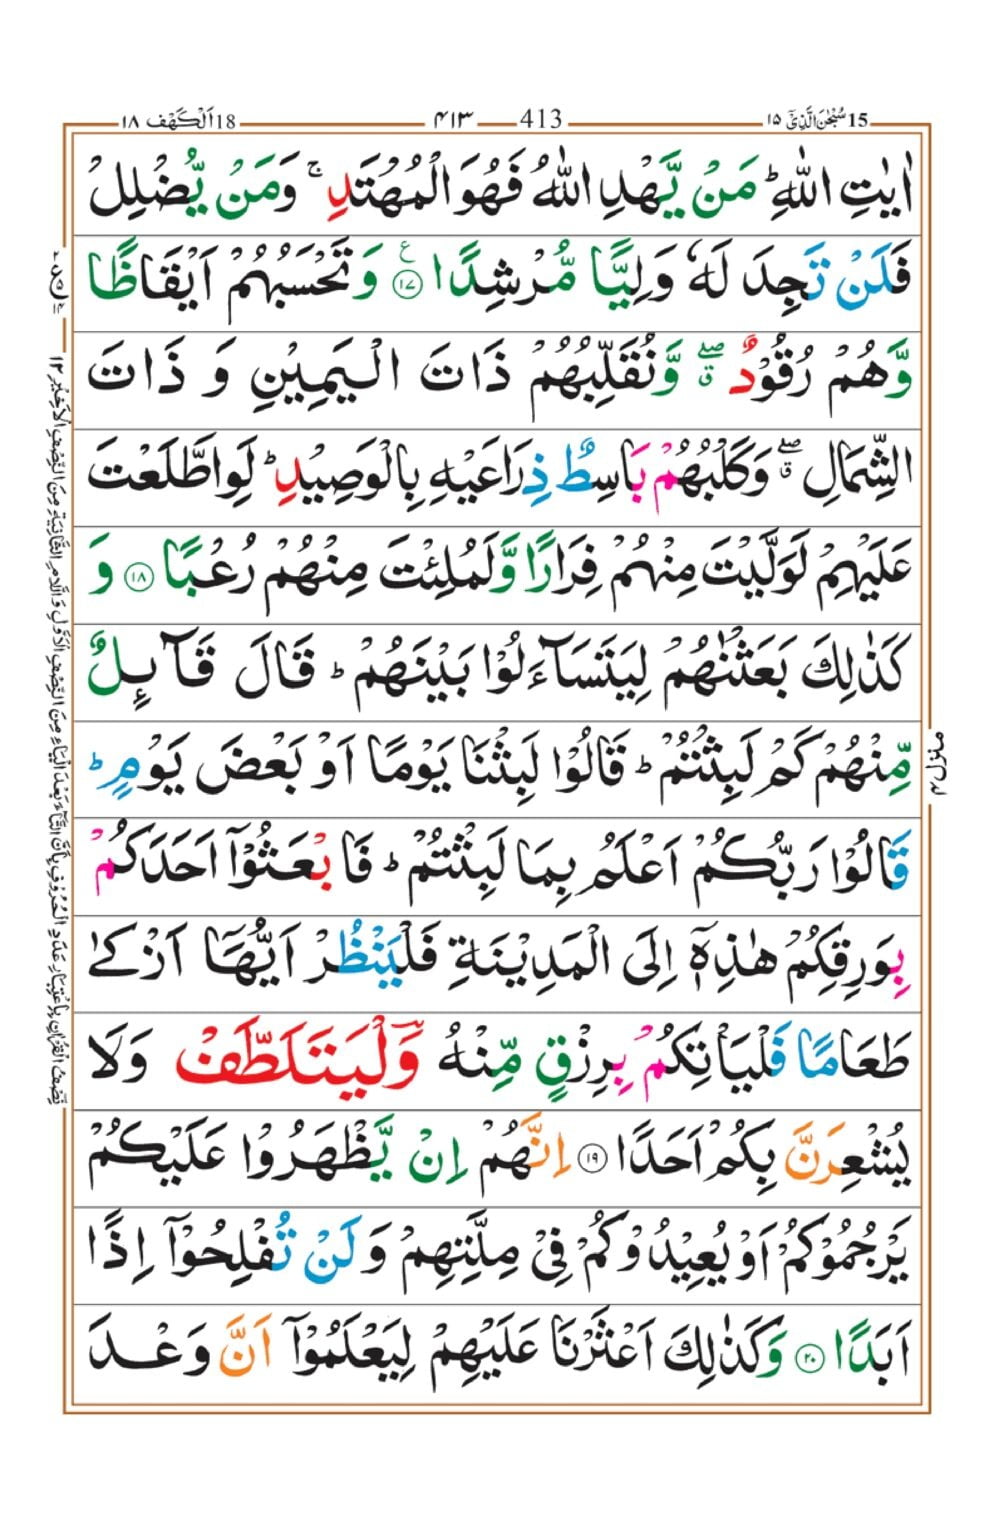 15 سُبْحٰنَ الَّذِیْۤ ۱۵
413 ۴۱۳
18 اَلْكَهْف ۱۸
اٰیٰتِ اللّٰهِ ؕ مَنْ یَّهْدِ اللّٰهُ فَهُوَ الْمُهْتَدِ ۚ وَمَنْ یُّضْلِلْ
فَلَنْ تَجِدَ لَهٗ وَلِیًّا مُّرْشِدًا ۠ ﴿۱۷﴾ وَتَحْسَبُهُمْ اَیْقَاظًا
وَّهُمْ رُقُوْدٌ ۖۗ وَّنُقَلِّبُهُمْ ذَاتَ الْیَمِیْنِ وَ ذَاتَ
الشِّمَالِ ۖۗ وَكَلْبُهُمْ بَاسِطٌ ذِرَاعَیْهِ بِالْوَصِیْدِ ؕ لَوِاطَّلَعْتَ
عَلَیْهِمْ لَوَلَّیْتَ مِنْهُمْ فِرَارًا وَّلَمُلِئْتَ مِنْهُمْ رُعْبًا ﴿۱۸﴾ وَ
كَذٰلِكَ بَعَثْنٰهُمْ لِیَتَسَآءَلُوْا بَیْنَهُمْ ؕ قَالَ قَآىِٕلٌ
مِّنْهُمْ كَمْ لَبِثْتُمْ ؕ قَالُوْا لَبِثْنَا یَوْمًا اَوْ بَعْضَ یَوْمٍ ؕ
قَالُوْا رَبُّكُمْ اَعْلَمُ بِمَا لَبِثْتُمْ ؕ فَابْعَثُوْۤا اَحَدَكُمْ
بِوَرِقِكُمْ هٰذِهٖۤ اِلَی الْمَدِیْنَةِ فَلْیَنْظُرْ اَیُّهَاۤ اَزْكٰی
طَعَامًا فَلْیَاْتِكُمْ بِرِزْقٍ مِّنْهُ وَلْیَتَلَطَّفْ وَلَا
یُشْعِرَنَّ بِكُمْ اَحَدًا ﴿۱۹﴾ اِنَّهُمْ اِنْ یَّظْهَرُوْا عَلَیْكُمْ
یَرْجُمُوْكُمْ اَوْ یُعِیْدُوْكُمْ فِیْ مِلَّتِهِمْ وَلَنْ تُفْلِحُوْۤا اِذًا
اَبَدًا ﴿۲۰﴾ وَكَذٰلِكَ اَعْثَرْنَا عَلَیْهِمْ لِیَعْلَمُوْۤا اَنَّ وَعْدَ
منزل ۴
نِصْفُ الْقُرْاٰنِ بِاِعْتِبَارِ عَدَدِ الْحُرُوْفِ بِاَنَّ التَّاءَ بَعْدَ الْیَاءِ مِنَ النِّصْفِ الْاَوَّلِ وَاللَّامِ الثَّانِیَةِ مِنَ النِّصْفِ الْاَخِیْرِ ۱۲